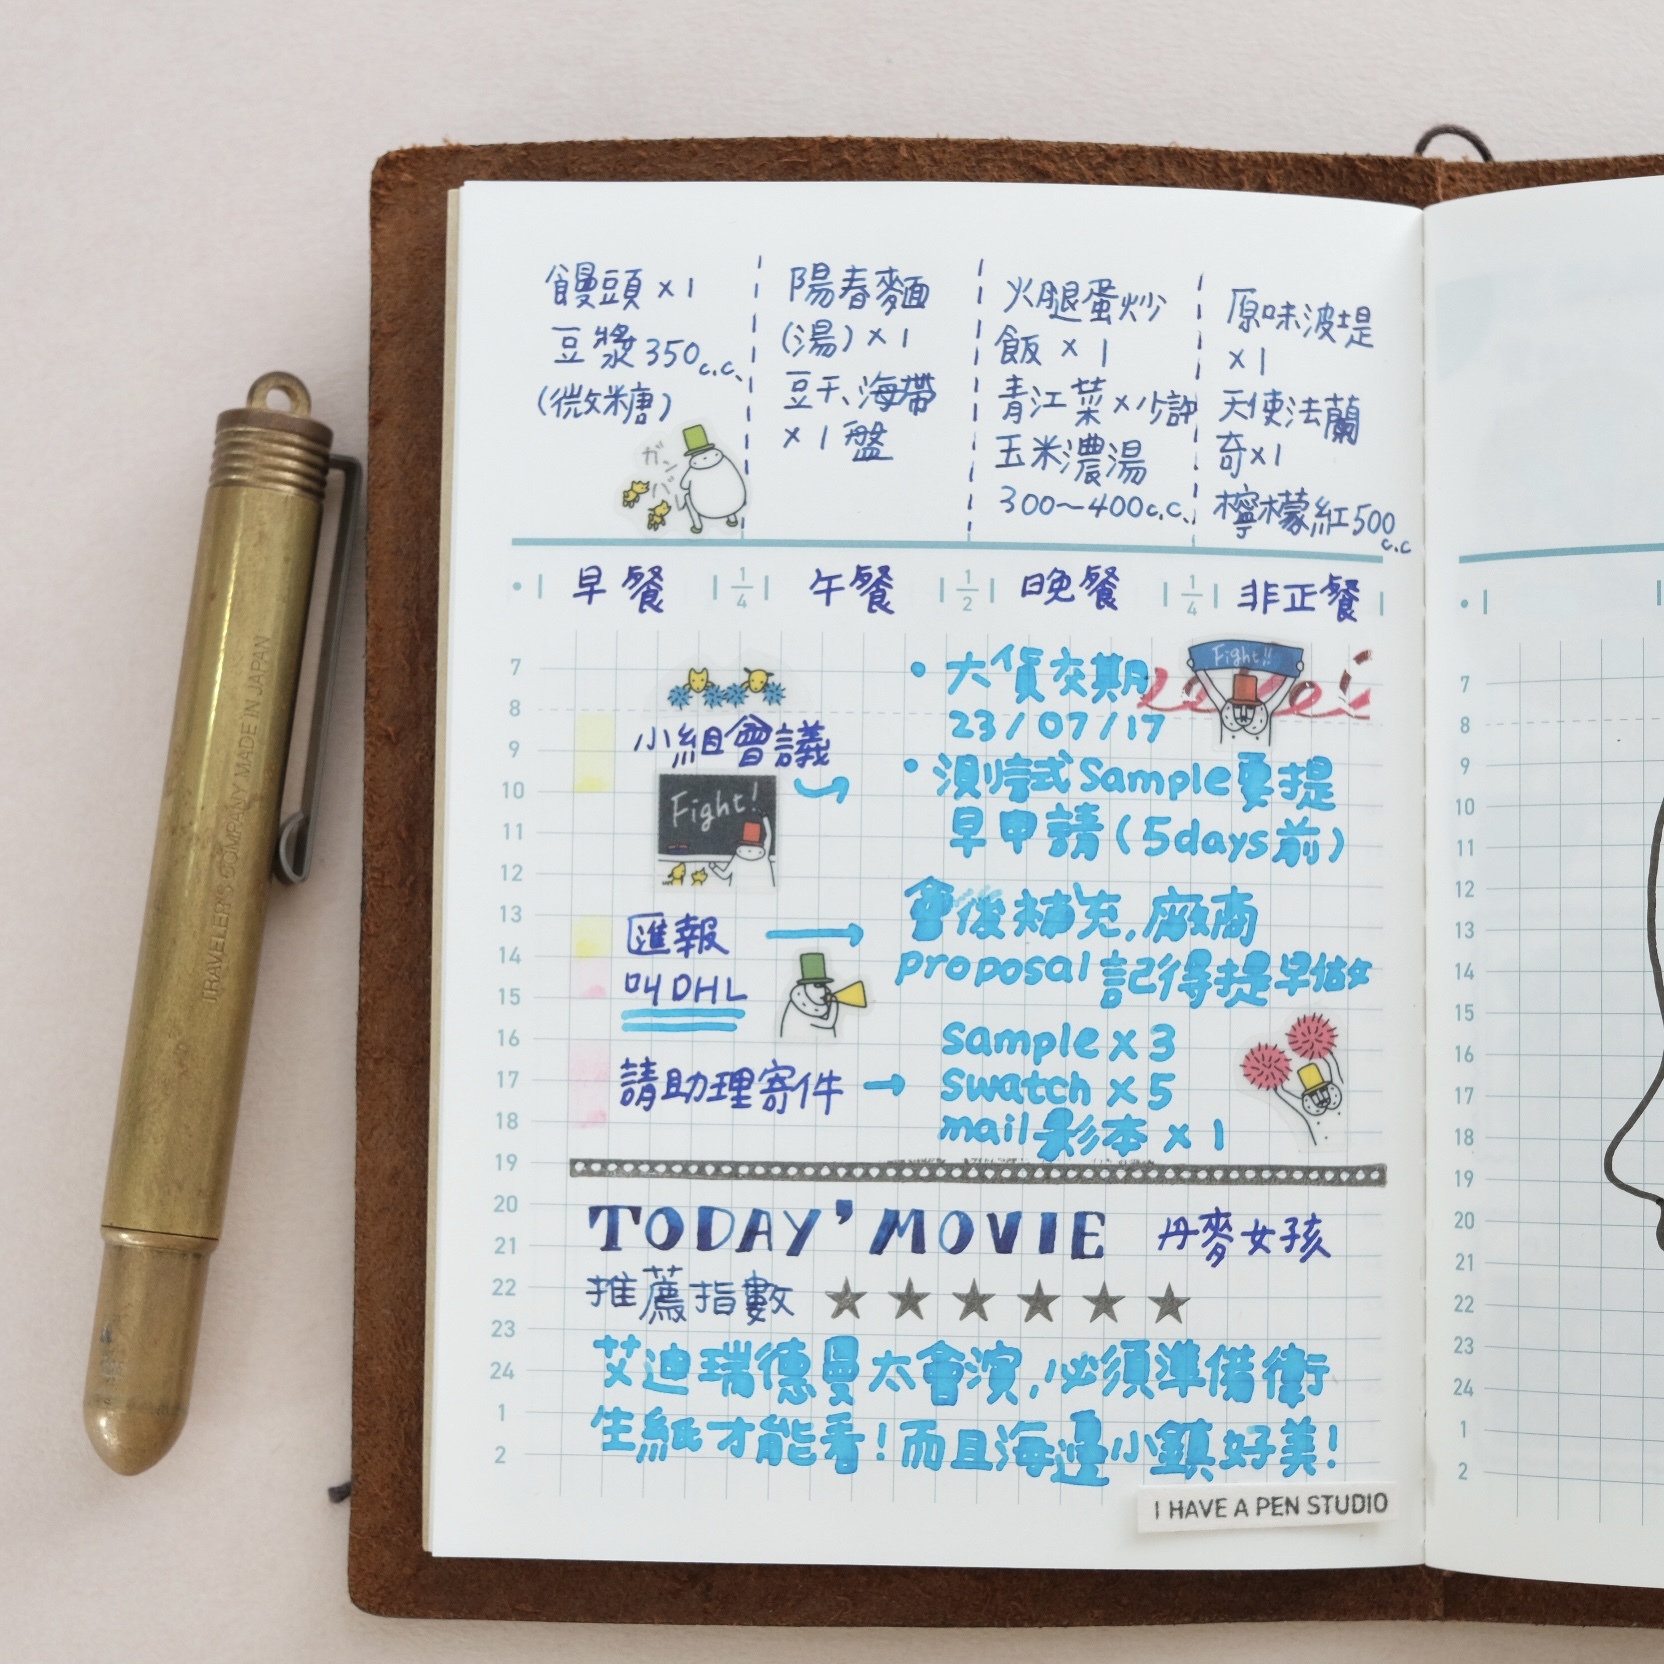 饅頭 x1
豆漿 350c.c.
(微糖)
ガン
バ
陽春麵
(湯) x1
豆干、海帶
x1 盤
火腿蛋炒
飯 x 1
青江菜x少許
玉米濃湯
300～400c.c.
原味波堤
x1
天使法蘭
奇x1
檸檬紅500
c.c
早餐 1/4 午餐 1/2 晚餐 1/4 非正餐
7
8
9
10
11
12
13
14
15
16
17
18
19
20
21
22
23
24
1
2
小組會議
Fight!
匯報
叫DHL
請助理寄件
• 大貨交期
23/07/17
Fight!!
• 測試Sample要提
早申請(5days前)
會後補充,廠商
proposal記得提早做
Sample x 3
Swatch x 5
mail影本 x 1
TODAY'MOVIE 丹麥女孩
推薦指數 ★★★★★★
艾迪瑞德曼太會演,必須準備衛
生紙才能看!而且海邊小鎮好美!
I HAVE A PEN STUDIO
TRAVELER'S COMPANY MADE IN JAPAN
7
8
9
10
11
12
13
14
15
16
17
18
19
20
21
22
23
24
1
2